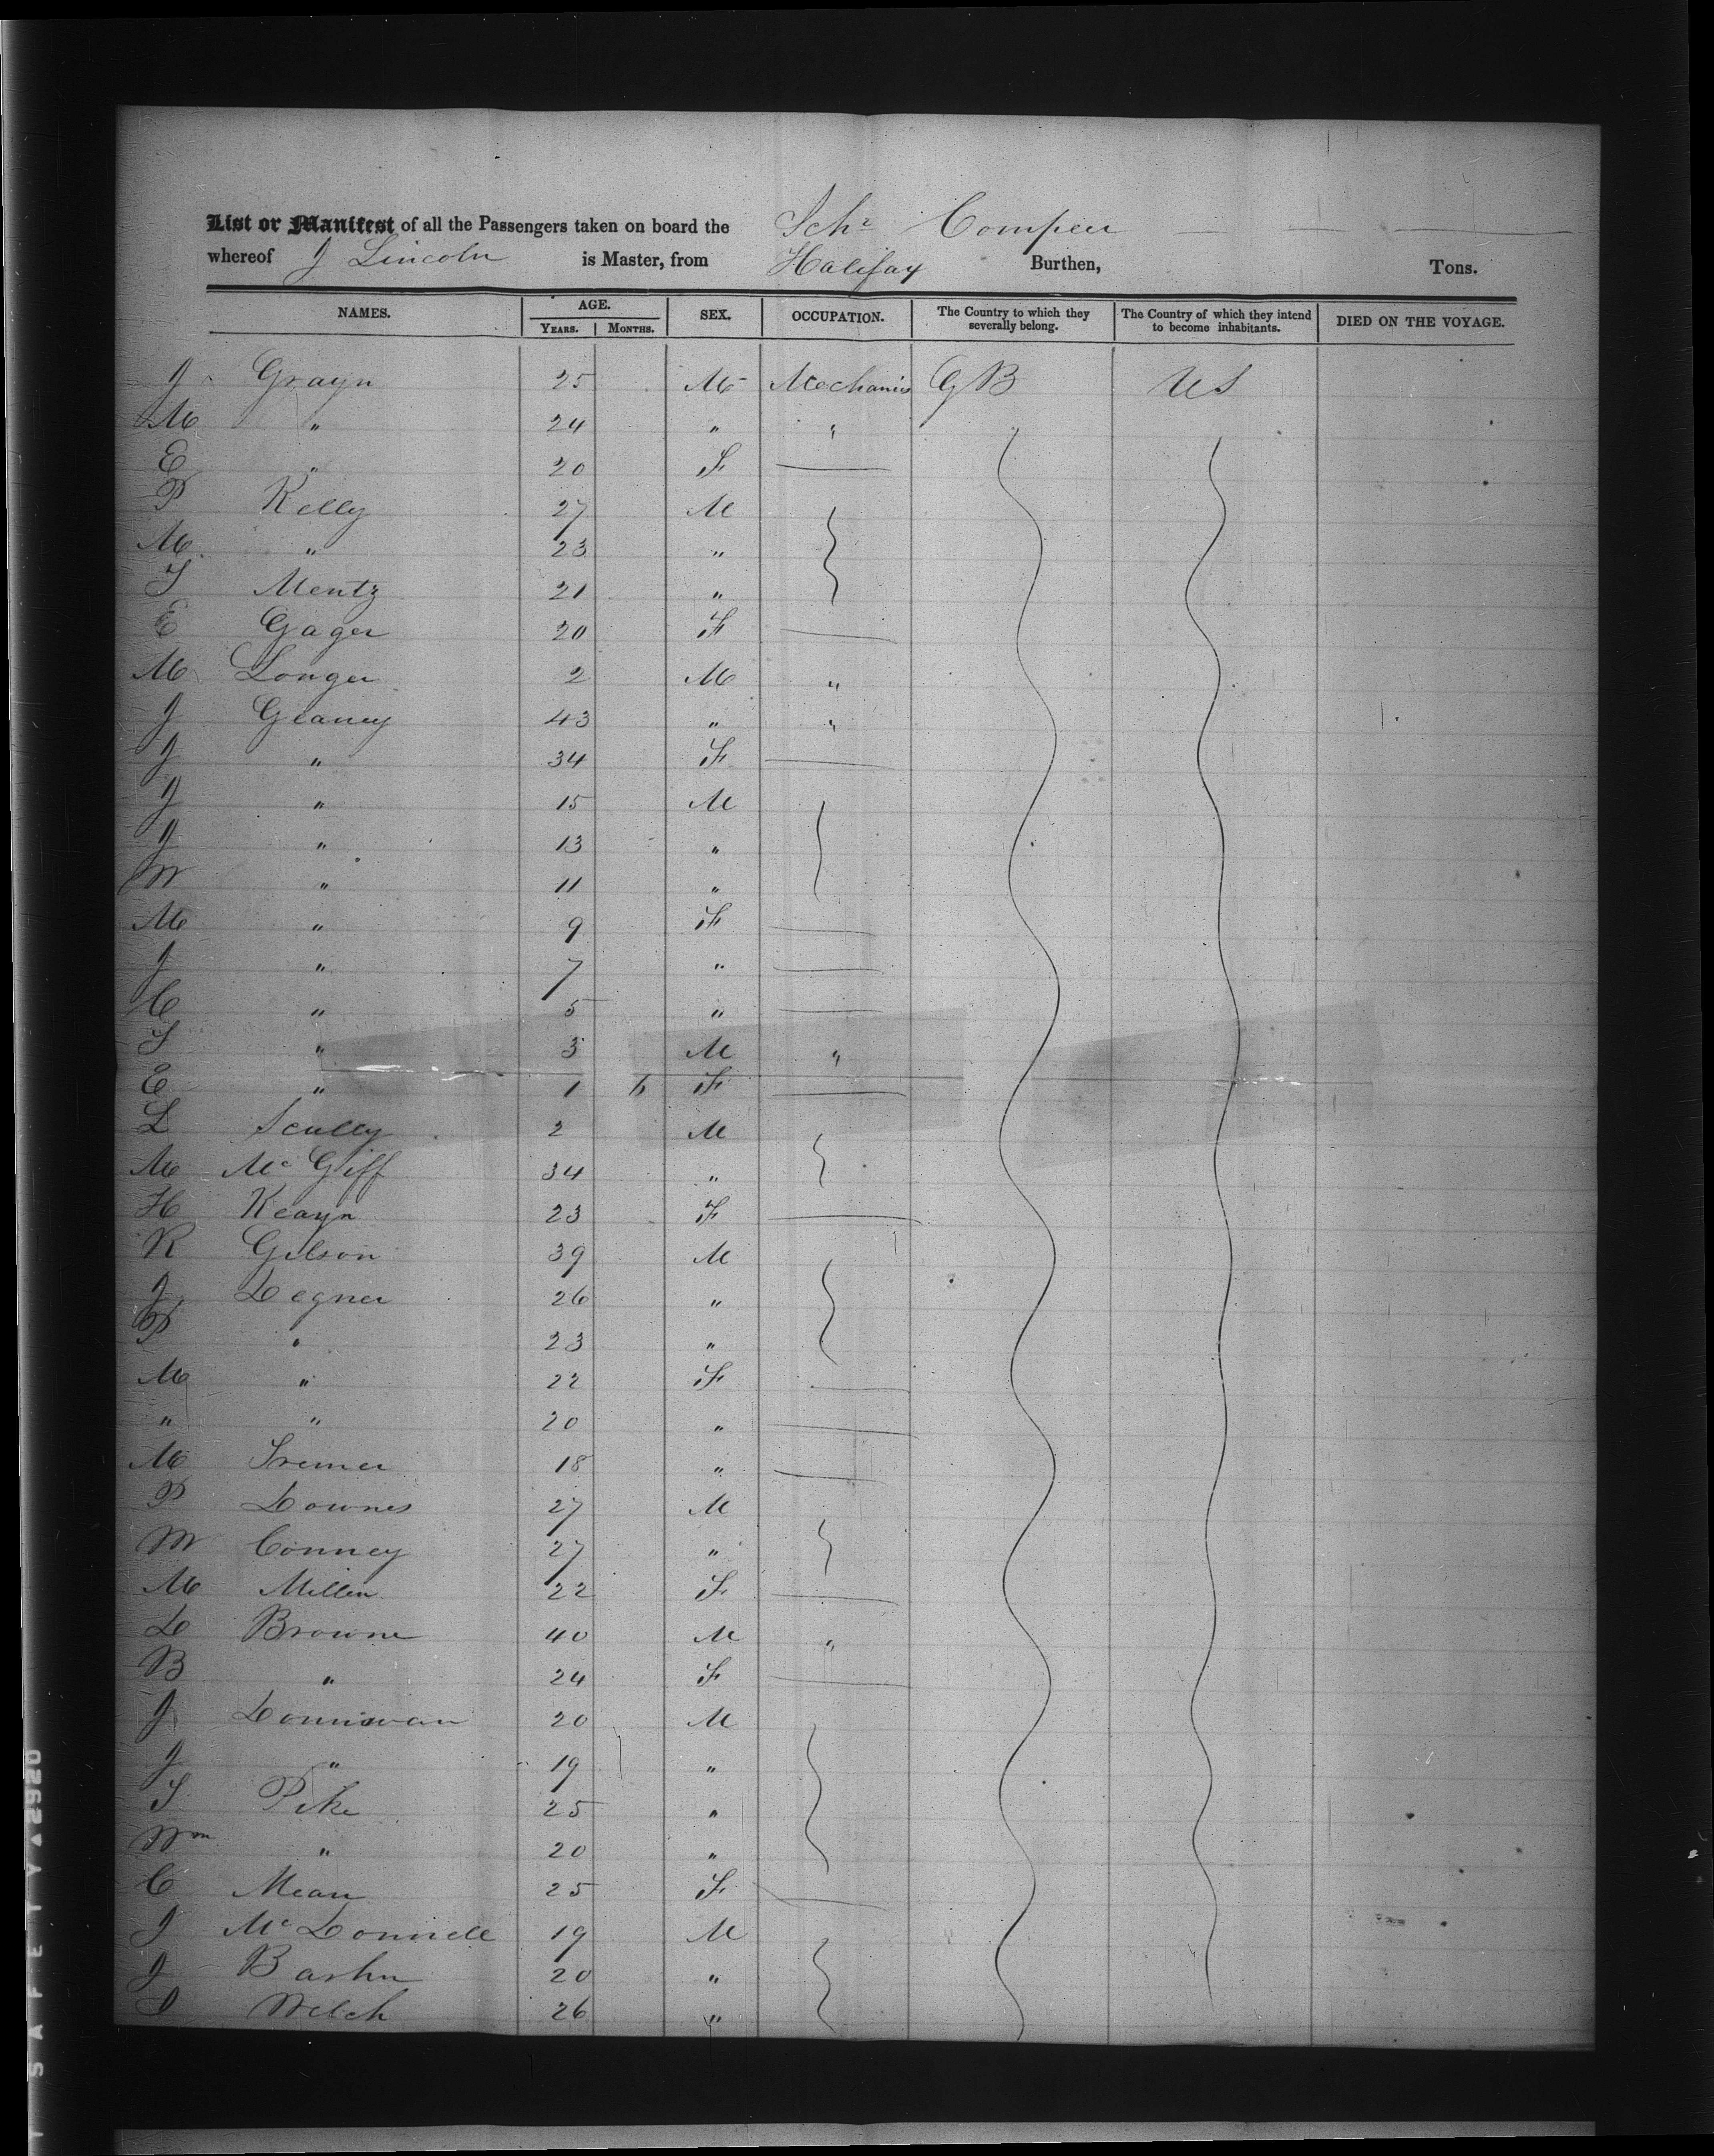 List or Manifest of all the Passengers taken on board the Schr Compeer
whereof J Lincoln is Master, from Halifax Burthen, Tons.
NAMES. AGE. YEARS. MONTHS. SEX. OCCUPATION. The Country to which they severally belong. The Country of which they intend to become inhabitants. DIED ON THE VOYAGE.
J Grayn 25 M Mechanics GB US
M " 24 " "
E " 20 F
P Kelly 27 M
M " 23 "
S Mentz 21 "
E Gager 20 F
M Longer 2 M "
J Glaney 43 " "
J " 34 F
J " 15 M
J " 13 "
W " 11 "
M " 9 F
J " 7 "
C " 5 "
S " 3 M "
E " 1 6 F
L Scully 2 M
M Mc Giff 34 "
H Keayn 23 F
R Gilson 39 M
J Degner 26 "
P " 23 "
M " 22 F
" " 20 "
M 18 "
P Downes 27 M
M Conney 27 "
M Millen 22 F
D Browne 40 M "
B " 24 F
J Donnivan 20 M
J " 19 "
S Pike 25 "
Wm " 20 "
C Mean 25 F
J Mc Donnell 19 M
J 20 "
Welch 26 "
SAFETY 2920